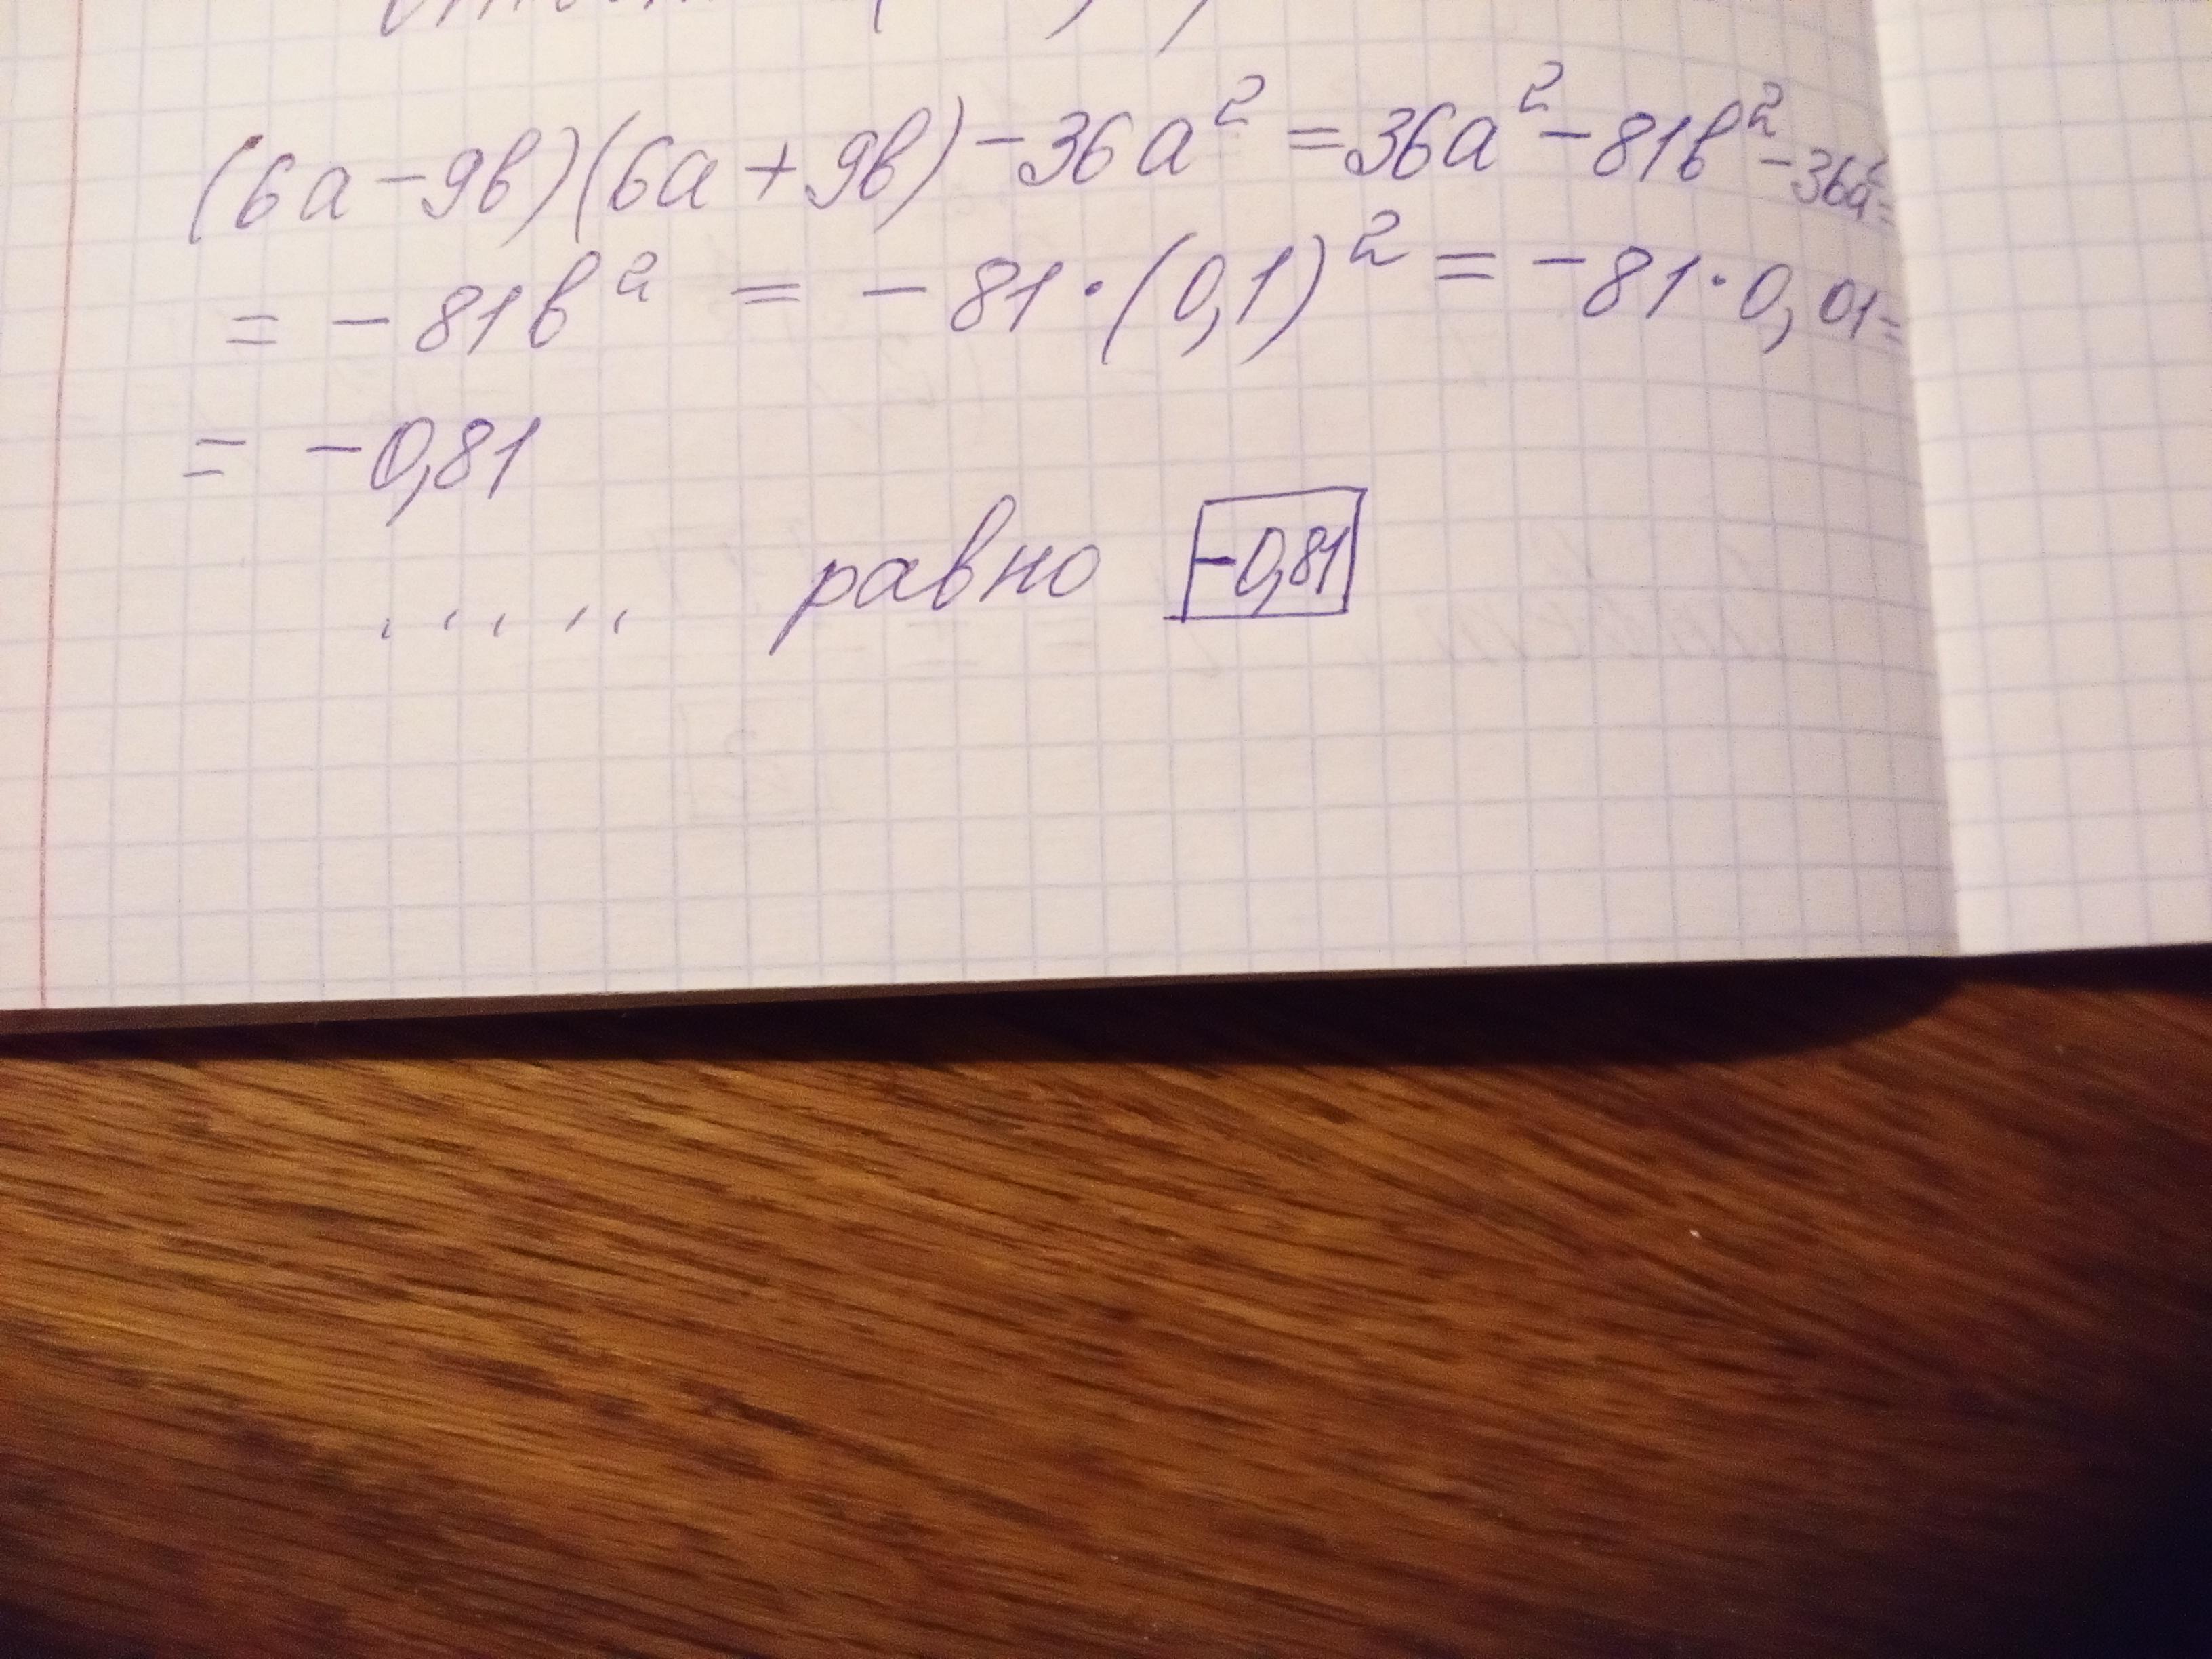 (6a-9в)(6a+9в)-36a²=36a²-81в²-36a²=
= -81в² = -81·(0,1)² = -81·0,01=
= -0,81
..... равно -0,81